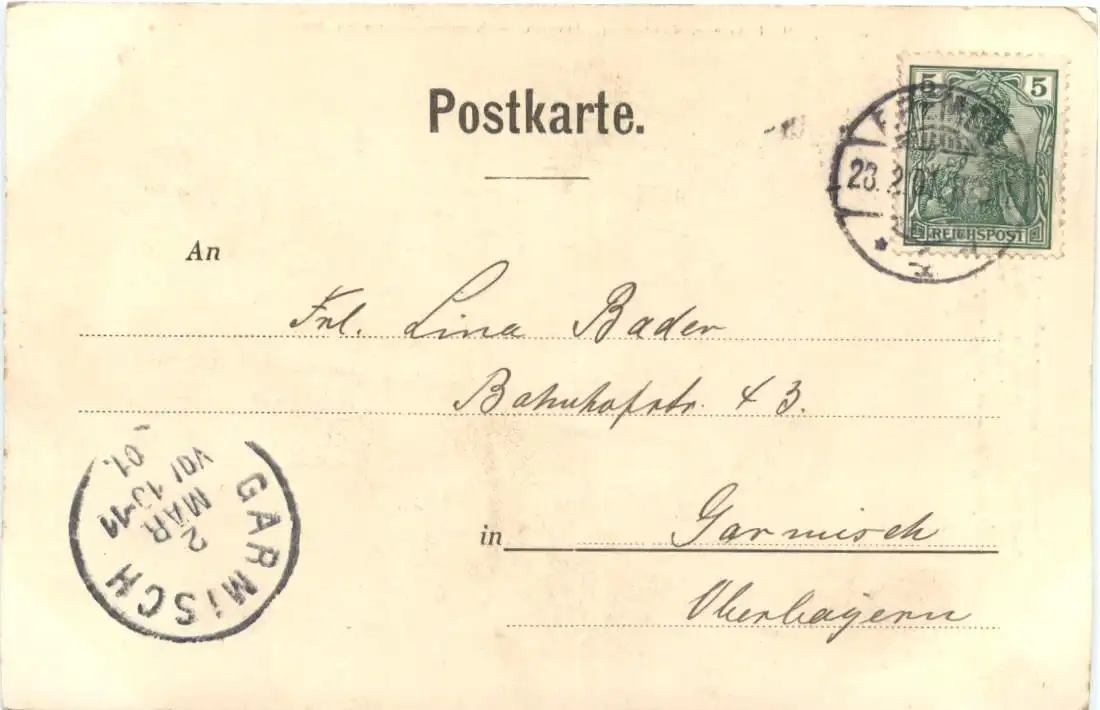 Postkarte.
5 5
REICHSPOST
An
Frl. Lina Bader
Bahnhofstr. 43.
in Garmisch
Oberbayern
GARMISCH
2 MÄR
VOR 10-11
01.